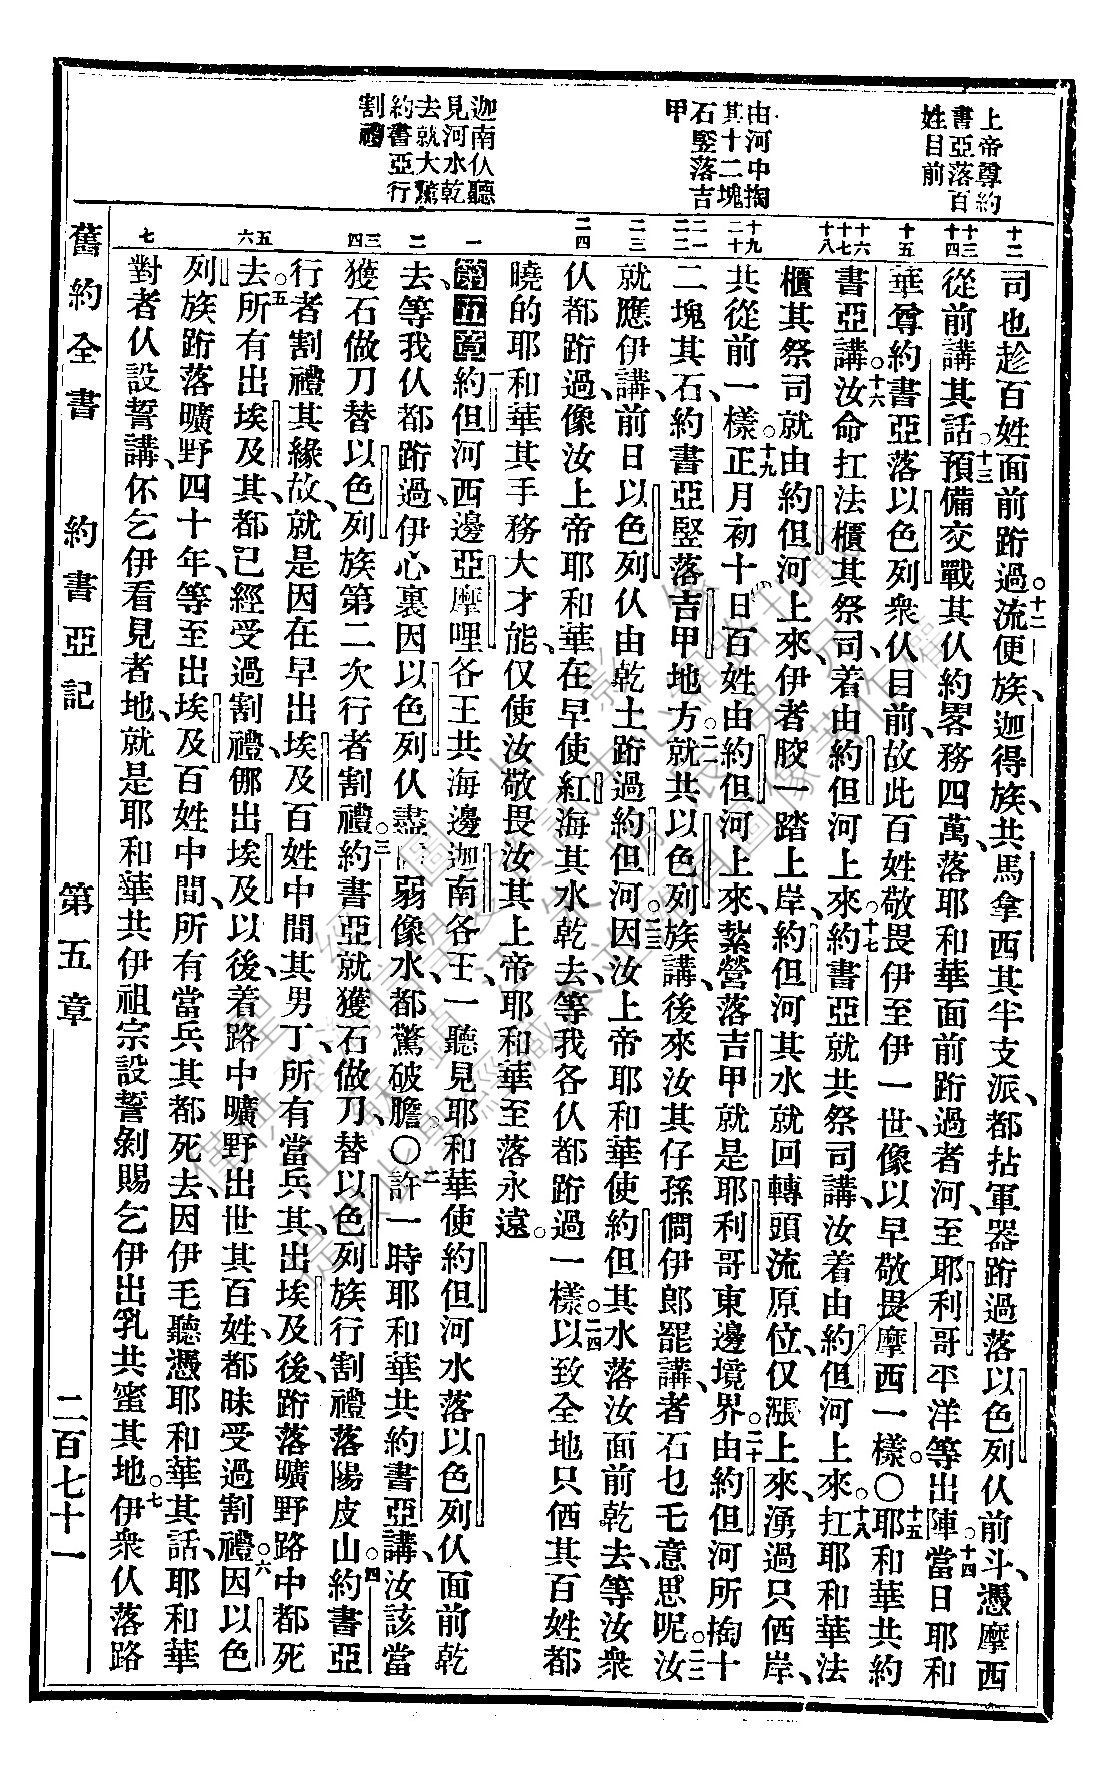 上帝尊約
書亞落百
姓目前
由河中掏
其十二塊
石竪落吉
甲
迦南仈聽
見河水乾
去就大驚
約書亞行
割禮
十二
十三
十四
十五
十六
十七
十八
十九
二十
二一
二二
二三
二四
一
二
三
四
五
六
七
司也趁百姓面前跨過。十二流便族、迦得族、共馬拿西其半支派、都拈軍器跨過落以色列仈前斗、憑摩西
從前講其話。十三預備交戰其仈約畧務四萬、落耶和華面前跨過者河、至耶利哥平洋等出陣。十四當日耶和
華尊約書亞落以色列衆仈目前、故此百姓敬畏伊至伊一世、像以早敬畏摩西一樣。〇十五耶和華共約
書亞講、十六汝命扛法櫃其祭司、着由約但河上來。十七約書亞就共祭司講、汝着由約但河上來。十八扛耶和華法
櫃其祭司就由約但河上來、伊者骹一踏上岸、約但河其水就回轉頭流原位、仅漲上來、湧過只仴岸、
共從前一樣。十九正月初十日百姓由約但河上來、紮營落吉甲、就是耶利哥東邊境界。二十由約但河所掏十
二塊其石、約書亞竪落吉甲地方。二一就共以色列族講、後來汝其仔孫僩伊郎罷講、者石乜乇意思呢。二二汝
就應伊講、前日以色列仈由乾土跨過約但河。二三因汝上帝耶和華使約但其水落汝面前乾去、等汝衆
仈都跨過、像汝上帝耶和華在早使紅海其水乾去、等我各仈都跨過一樣。二四以致全地只仴其百姓都
曉的耶和華其手務大才能、仅使汝敬畏汝其上帝耶和華至落永遠。
第五章一約但河西邊亞摩哩各王共海邊迦南各王一聽見耶和華使約但河水落以色列仈面前乾
去、等我仈都跨過、伊心裏因以色列仈盡弱像水、都驚破膽。〇二許一時耶和華共約書亞講、汝該當
獲石做刀、替以色列族第二次行者割禮。三約書亞就獲石做刀、替以色列族行割禮落陽皮山。四約書亞
行者割禮其緣故、就是因在早出埃及百姓中間、其男丁所有當兵其、出埃及後、跨落曠野路中都死
去。五所有出埃及其、都已經受過割禮、㑚出埃及以後、着路中曠野出世其百姓、都昧受過割禮。六因以色
列族跨落曠野四十年、等至出埃及百姓中間、所有當兵其都死去、因伊毛聽憑耶和華其話、耶和華
對者仈設誓講、伓乞伊看見者地、就是耶和華共伊祖宗設誓剝賜乞伊出乳共蜜其地。七伊衆仈落路
舊約全書
約書亞記
第五章
二百七十一